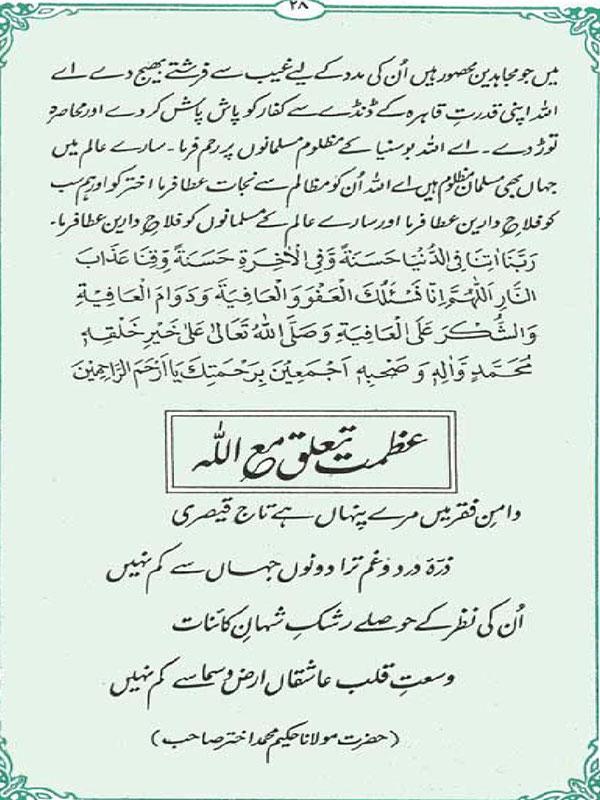 ۲۸
میں جو مجاہدین محصور ہیں اُن کی مدد کے لیے غیب سے فرشتے بھیج دے اے
اللہ اپنی قدرتِ قاہرہ کے ڈنڈے سے کفار کو پاش پاش کر دے اور محاصرہ
توڑ دے۔ اے اللہ بوسنیا کے مظلوم مسلمانوں پر رحم فرما۔ سارے عالم میں
جہاں بھی مسلمان مظلوم ہیں اے اللہ اُن کو مظالم سے نجات عطا فرما اختر کو اور ہم سب
کو فلاحِ دارین عطا فرما اور سارے عالم کے مسلمانوں کو فلاحِ دارین عطا فرما۔
رَبَّنَا اٰتِنَا فِی الدُّنْیَا حَسَنَةً وَّفِی الْاٰخِرَةِ حَسَنَةً وَّقِنَا عَذَابَ
النَّارِ اَللّٰهُمَّ اِنَّا نَسْئَلُكَ الْعَفْوَ وَالْعَافِیَةَ وَدَوَامَ الْعَافِیَةِ
وَالشُّكْرَ عَلَی الْعَافِیَةِ وَصَلَّی اللّٰهُ تَعَالٰی عَلٰی خَیْرِ خَلْقِهٖ
مُحَمَّدٍ وَّاٰلِهٖ وَصَحْبِهٖ اَجْمَعِیْنَ بِرَحْمَتِكَ یَا اَرْحَمَ الرَّاحِمِیْنَ
عظمت تعلق مع اللہ
دامنِ فقر میں مرے پنہاں ہے تاجِ قیصری
ذرّۂ درد و غم ترا دونوں جہاں سے کم نہیں
اُن کی نظر کے حوصلے رشکِ شہانِ کائنات
وسعتِ قلب عاشقاں ارض و سما سے کم نہیں
(حضرت مولانا حکیم محمد اختر صاحب)